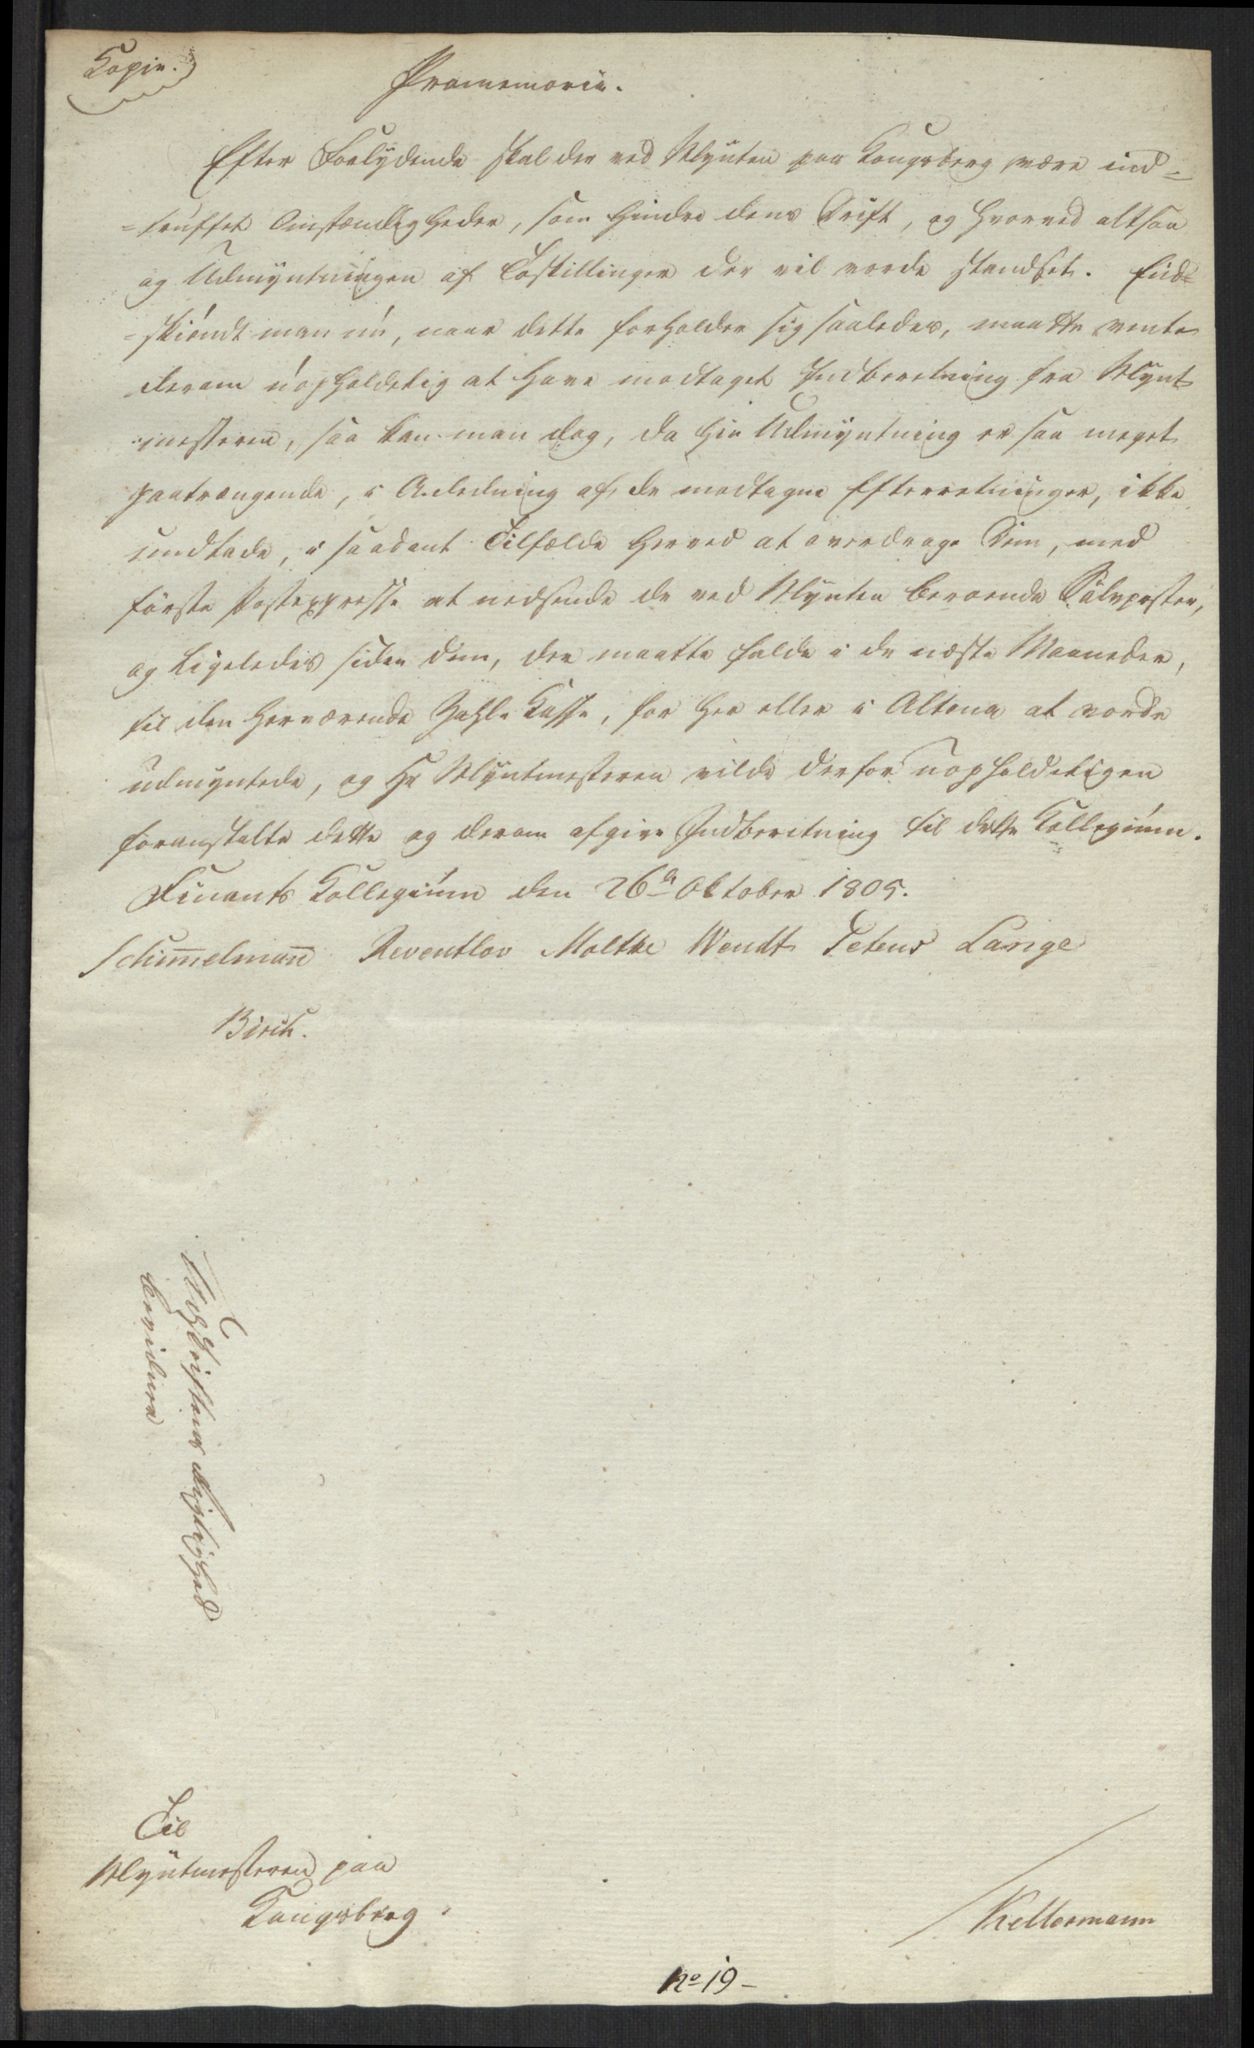 Kopie.
Promemoria.
Efter Forlydende skal der ved Mynten paa Kongsberg være ind=
=truffet Omstændigheder, som hindre dens Drift, og hvorved altsaa
og Udmyntningen af Toskillinger der vil vorde standset. End=
=skiöndt man nu, naar dette forholder sig saaledes, maatte vente
derom uopholdelig at have modtaget Indberetning fra Mynt
mesteren, saa kan man dog, da hin Udmyntning er saa meget
paatrængende, i Anledning af de modtagne Efterretninger, ikke
undlade, i saadant Tilfælde herved at overdrage Dem, med
første Postexpresse at nedsende de ved Mynten beroende Sölvposter,
og ligeledes siden dem, der maatte falde i de næste Maaneder,
til den herværende Zahl-Kasse, for her eller i Altona at vorde
udmyntede, og Hr Myntmesteren vilde derfor uopholdeligen
foranstalte dette og derom afgive Indberetning til dette Kollegium.
Finants Kollegium den 26de Oktober 1805.
Schimmelmann Reventlov Moltke Wendt Petens Lange
Birch.
Afskriftens Rigtighed
bevidner
Til
Myntmesteren paa
Kongsberg.
Kellermann
No 19-